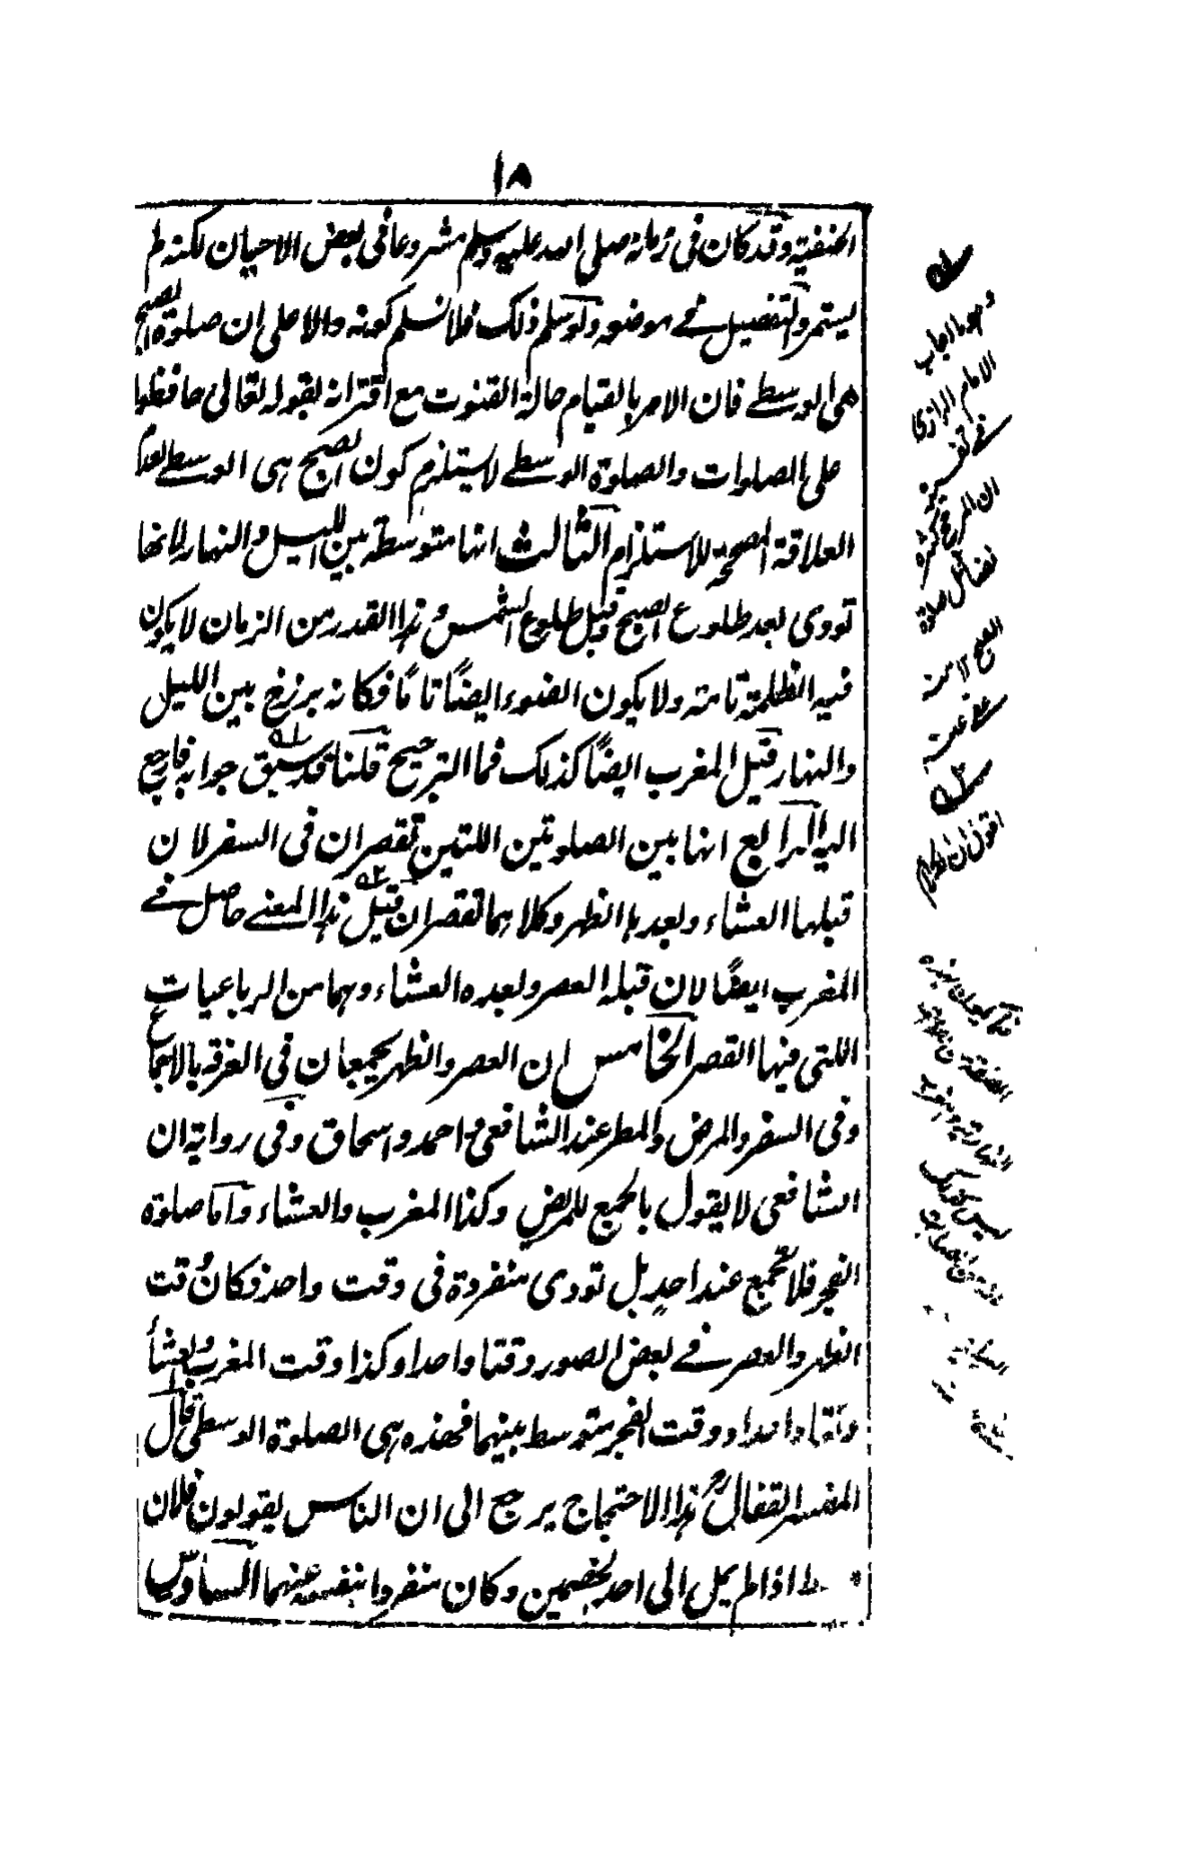 ١٨
الحنفية وقد كان فى زمانه صلى الله عليه وسلم مشروعا فى بعض الاحيان لكنه لم
يستمر والتفصيل فى موضعه ولو سلم ذلك فلا نسلم كونه دالا على ان صلوة الصبح
هى الوسطى فان الامر بالقيام حالة القنوت مع اقترانه بقوله تعالى حافظوا
على الصلوات والصلوة الوسطى لا يستلزم كون الصبح هى الوسطى لعدم
العلاقة المصححة للاستلزام الثالث انها متوسطة بين الليل والنهار لانها
تودى بعد طلوع الصبح وقبل طلوع الشمس وهذا القدر من الزمان لا يكون
فيه الظلمة تامة ولا يكون الضوء ايضًا تامًا فكانه برزخ بين الليل
والنهار قيل المغرب ايضًا كذلك فما الترجيح قلنا قد سبق جوابه فارجع
اليه الرابع انها بين الصلوتين اللتين تقصران فى السفر لان
قبلها العشاء وبعدها الظهر وكلاهما تقصران قيل هذا المعنى حاصل فى
المغرب ايضًا لان قبله العصر وبعده العشاء وهما من الرباعيات
اللتى فيها القصر الخامس ان العصر والظهر يجمعان فى العرفة بالاجماع
وفى السفر والمرض والمطر عند الشافعى واحمد واسحاق وفى رواية ان
الشافعى لا يقول بالجمع للمرض وكذا المغرب والعشاء واما صلوة
الفجر فلا تجمع عند احد بل تودى منفردة فى وقت واحد فكان وقت
الظهر والعصر فى بعض الصور وقتا واحدا وكذا وقت المغرب والعشاء
وقتا واحدا ووقت الفجر متوسط بينهما فهذه هى الصلوة الوسطى قال
المفسر القفال هذا الاحتجاج يرجع الى ان الناس يقولون فلان
وسط اذا لم يمل الى احد الخصمين وكان منفردا بنفسه عنهما السادس
ما اجاب
الامام الرازى
فى تفسيره
ان المرجح كثرة
فضائل صلوة
الصبح